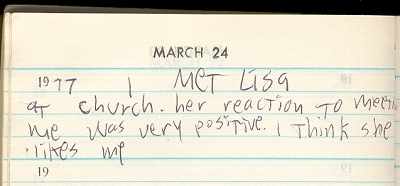 MARCH 24
1977 I MeT LISa
aT church. her reaction To meetin
me was very positive. I Think she
likes me
19